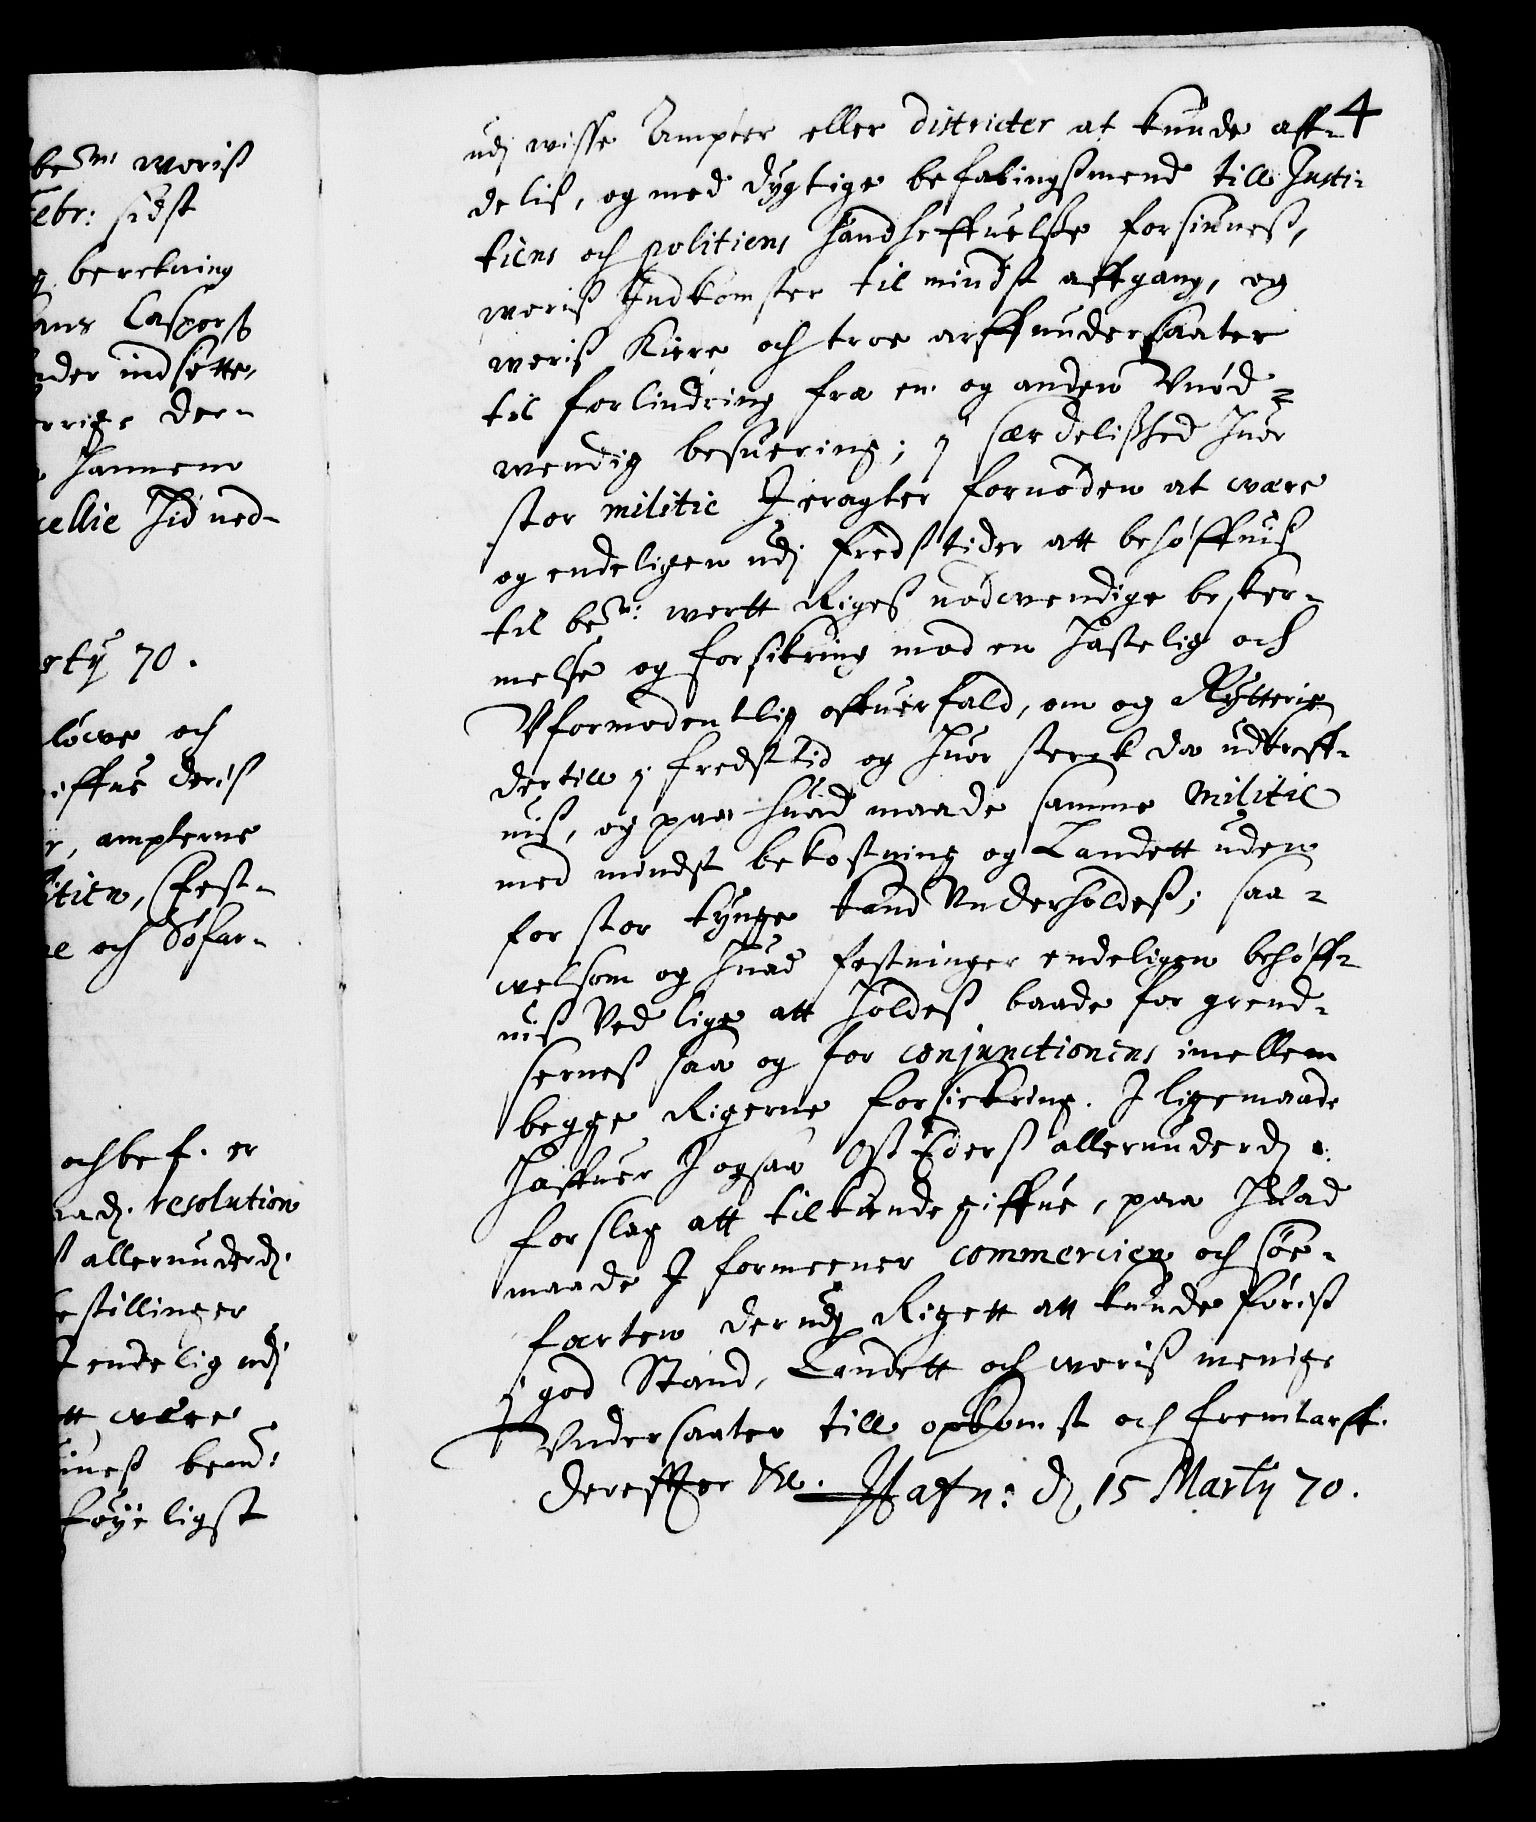 be:te woriß
Febr: sidst
berettning
Hans Caspers
der indsette,
rrige der-
hannem
cellie hid ned-
rty 70.
löwe och
iffue deriß
r, ampterne
litien, Fest-
e och Söfar-
och bef. er
aad. resolution
ß allerunderd.
estillinger
t endelig udj
tt være
uneß bem:
föyeligst
4
udj wisse Ampter eller districter at kunde aff-
deliß, og med dygtige befalingßmend till Justi-
tiens och politiens handheffuelße forsiuneß,
woriß Indkomster til mindst affgang, og
woriß Kiere och troe arffundersaater
til forlindring fra en og anden Vnöd-
wendig besuering; j særdelißhed huor
stor militie J eragter fornöden at være
og endeligen udj fredß tider att behöffuiß
til be:te wortt Rigeß nödvendige besker-
melse og forsikring mod en hastelig och
Vformodentlig offuerfald, om og Rytterie
dertill j fredß tid og huor sterck da udkreff-
uiß, og paa huad maade samme militie
med mindst bekostning og Landett uden
for stor tynge kand Underholdeß; saa-
welsom og huad festninger endeligen behöff-
uiß Ved lige att holdeß baade for grend-
serneß saa og for conjunctionens imellem
begge Rigerne forsickring. J ligemaade
haffuer J ogsaa Oß Ederß allerunderd.
forslag att tilkiende giffue, paa huad
maade J formeener commercien och söe-
farten der udj Rigett att kunde föriß
j god Stand, Landett och woriß menige
Undersaater till opkomst och fremtarff.
Dereffter &c. Hafn: d. 15 Martij 70.